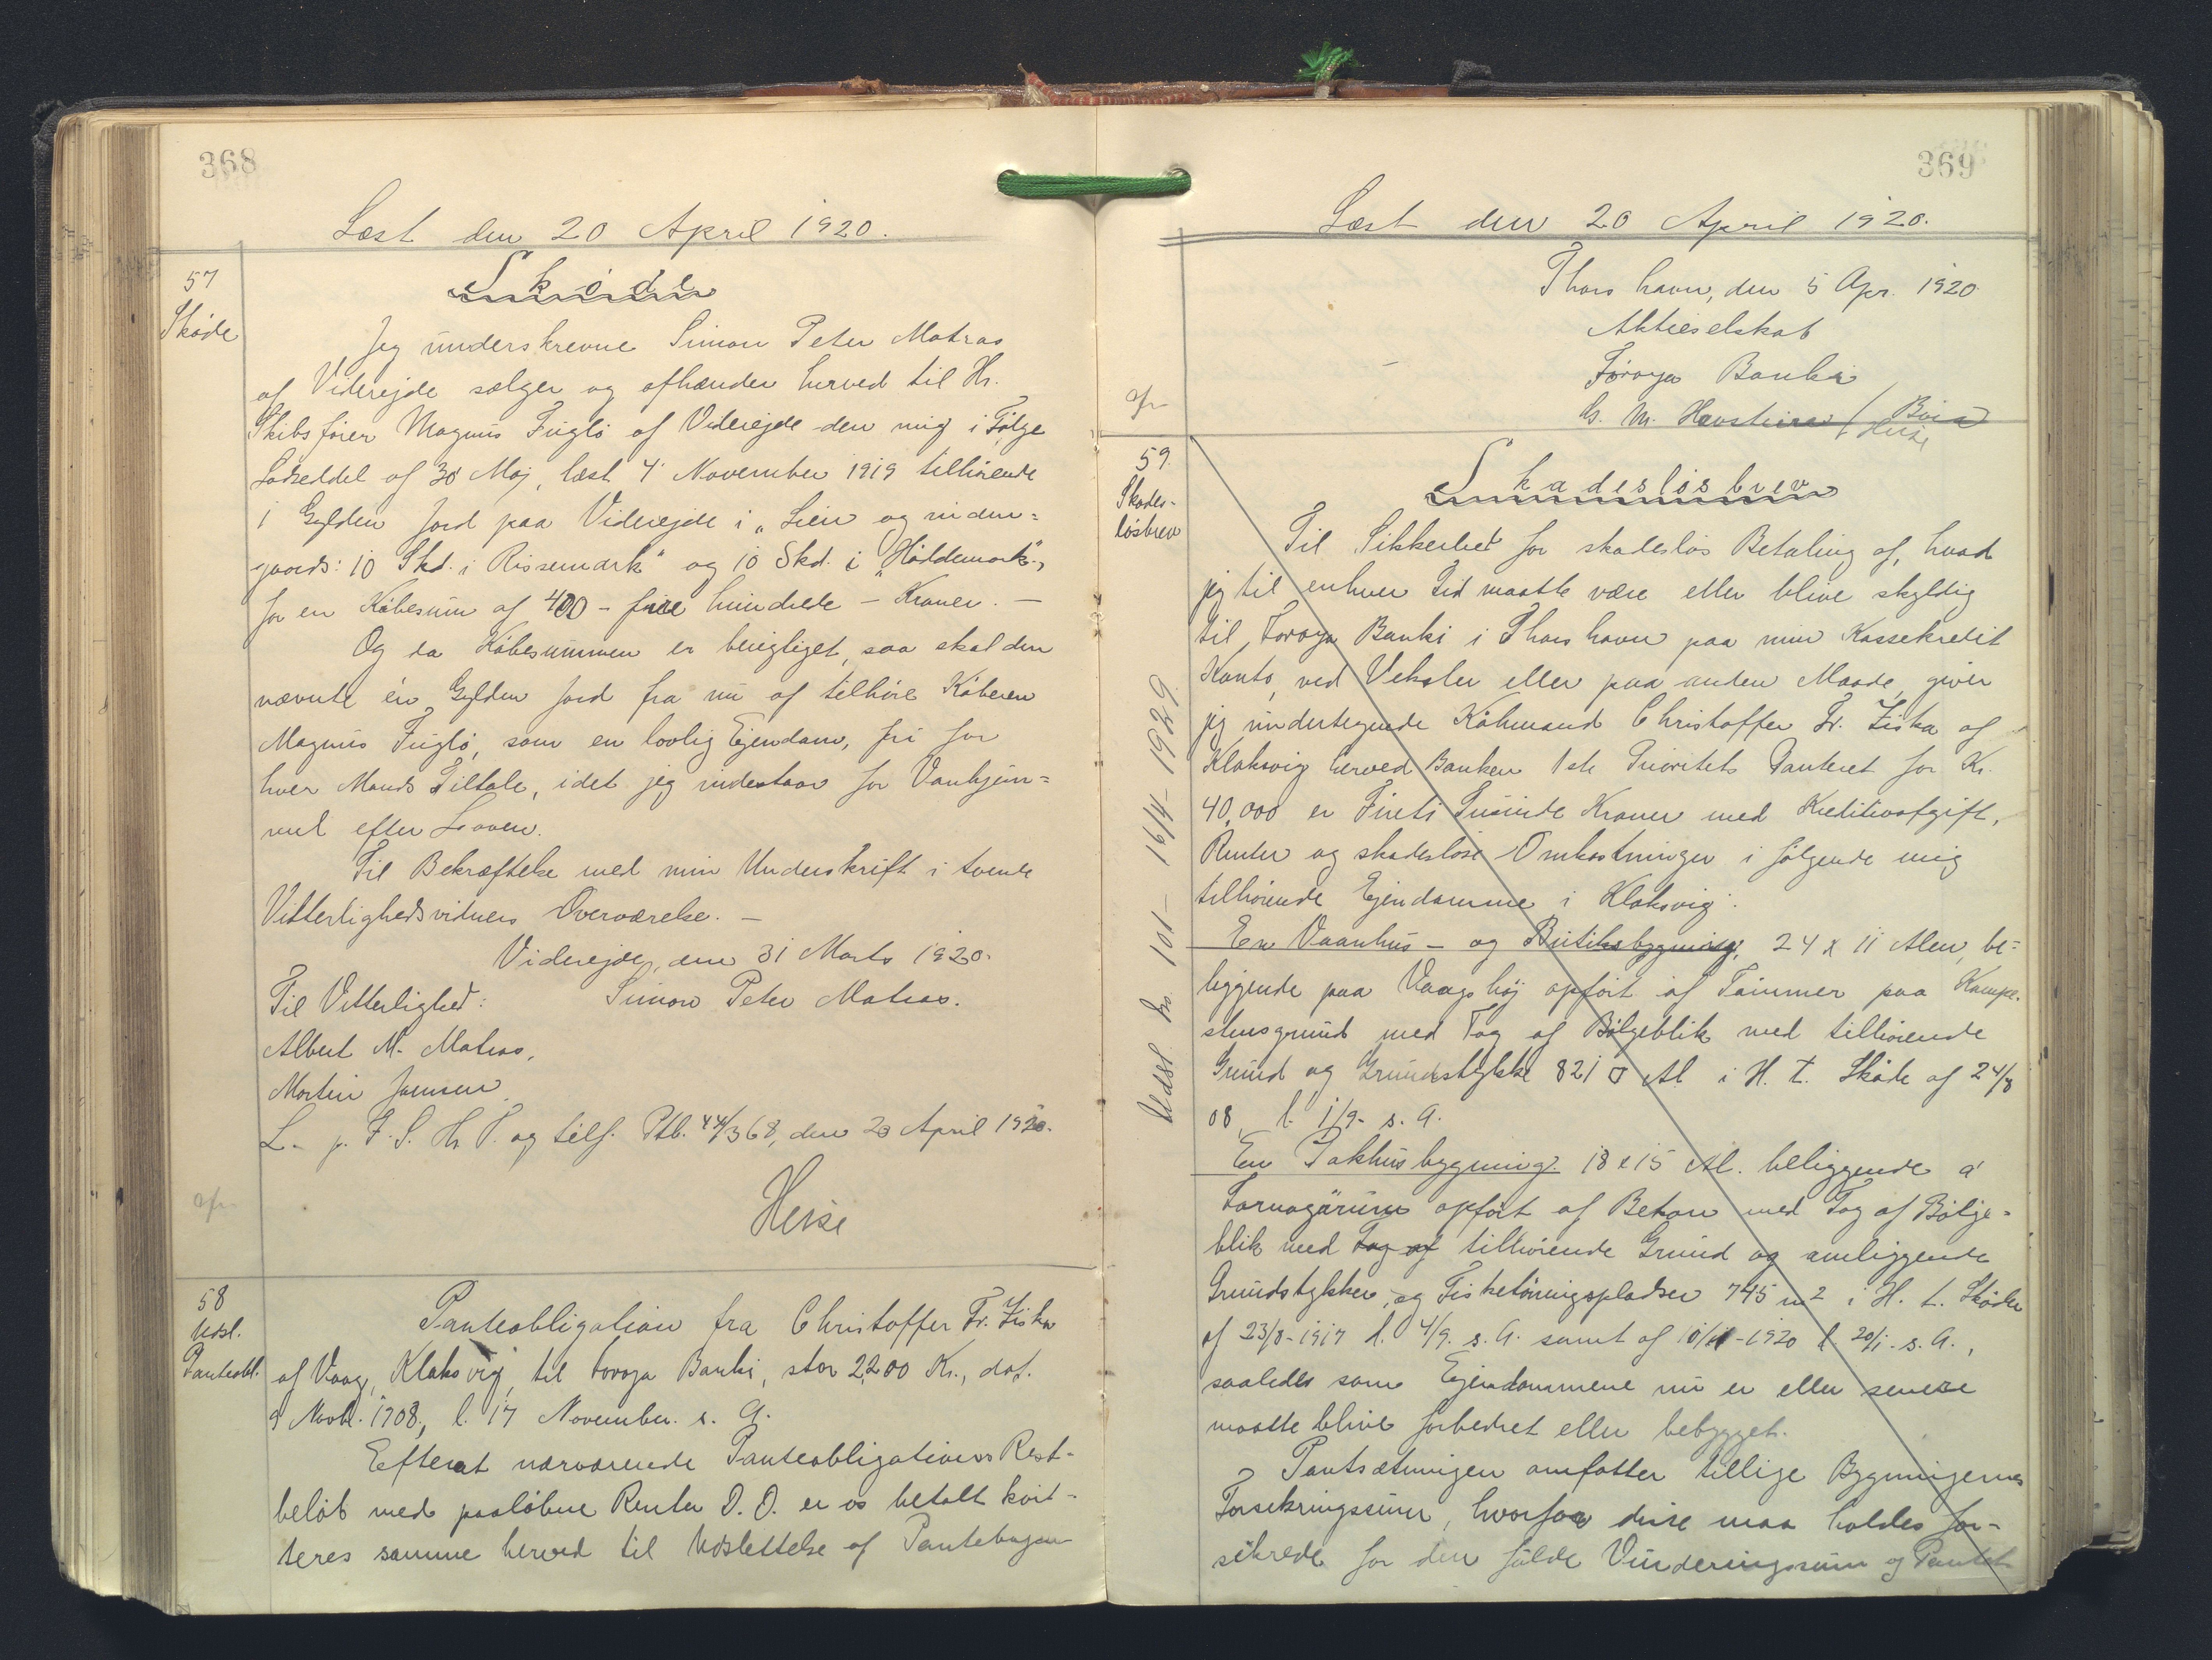 368
Læst den 20 April 1920.
57
Skøde
Skøde
Jeg underskrevne Simon Peter Matras
af Viderejde sælger og afhænder herved til Hr.
Skibsfører Magnus Fuglø af Viderejde den mig i Følge
Lodseddel af 30 Maj, læst 4 November 1919 tilhørende
1 Gylden Jord paa Viderejde i "Lien og inden=
gaards: 10 Skd. i Rissemark" og 10 Skd. i "Høldemark",
for en Købesum af 400 - fire hundrede - Kroner. -
Og da Købesummen er berigtiget, saa skal den
nævnte én Gylden Jord fra nu af tilhøre Køberen
Magnus Fuglø, som en lovlig Ejendom, fri for
hver Mands Tiltale, idet jeg indestaar for Vanhjem=
mel efter Loven.
Til Bekræftelse med min Underskrift i tvende
Vitterlighedsvidners Overværelse. -
Viderejde, den 31 Marts 1920.
Til Vitterlighed: Simon Peter Matras.
Albert M. Matras,
Martin Joensen.
L. p. F. S. Hr. P. og tilf. Ptb. 44/368, den 20 April 1920.
afs.
Heise
58
Udsl.
Panteobl.
Panteobligation fra Christoffer Fr. Ziska
af Vaag, Klaksvig, til Føroya Banki, stor 2,200 Kr., dat.
9 Novb. 1908, l. 17 November s. A.
Efterat nærværende Panteobligations Rest-
beløb med paaløbne Renter D. D. er os betalt kvit-
teres samme herved til Udslettelse af Pantebogen
369
Læst den 20 April 1920.
Thorshavn, den 5 Apr. 1920.
Aktieselskab
Føroya Banki
afs.
Heise
59.
Skades-
løsbrev
Skadesløsbrev
Til Sikkerhed for skadesløs Betaling af, hvad
jeg til enhver Tid maatte være eller blive skyldig
til Føroya Banki i Thorshavn paa min Kassekredit
Konto, ved Veksler eller paa anden Maade, giver
jeg undertegnede Købmand Christoffer Fr. Ziska af
Klaksvig herved Banken 1ste Prioritets Panteret for Kr.
40,000 er Fireti Tusinde Kroner med Kreditivafgift,
Renter og skadesløse Omkostninger i følgende mig
tilhørende Ejendomme i Klaksvig:
En Vaanhus- og Butiksbygning, 24 x 11 Alen, be=
liggende paa Vaagshøj opført af Tømmer paa Kampe-
stensgrund med Tag af Bølgeblik med tilhørende
Grund og Grundstykke 821 □ Al. i H. t. Skøde af 24/8
08, l. 1/9- s. A.
En Pakhusbygning, 18 x 15 Al. beliggende á
opført af Beton med Tag af Bølge=
blik med Tag af tilhørende Grund og omliggende
Grundstykker og Fisketørringspladser 745 m2 i H. t. Skøder
af 23/8-1917 l. 4/9. s. A. samt af 1920 l. 20/1. s. A.,
saaledes som Ejendommene nu er eller senere
maatte blive forbedret eller bebygget.
Pantsætningen omfatter tillige Bygningernes
Forsikringssum, hvorfor disse maa holdes for-
sikrede for den fulde Vurderingssum og Pantet
Udsl. Nr. 101 - 16/4 - 1929